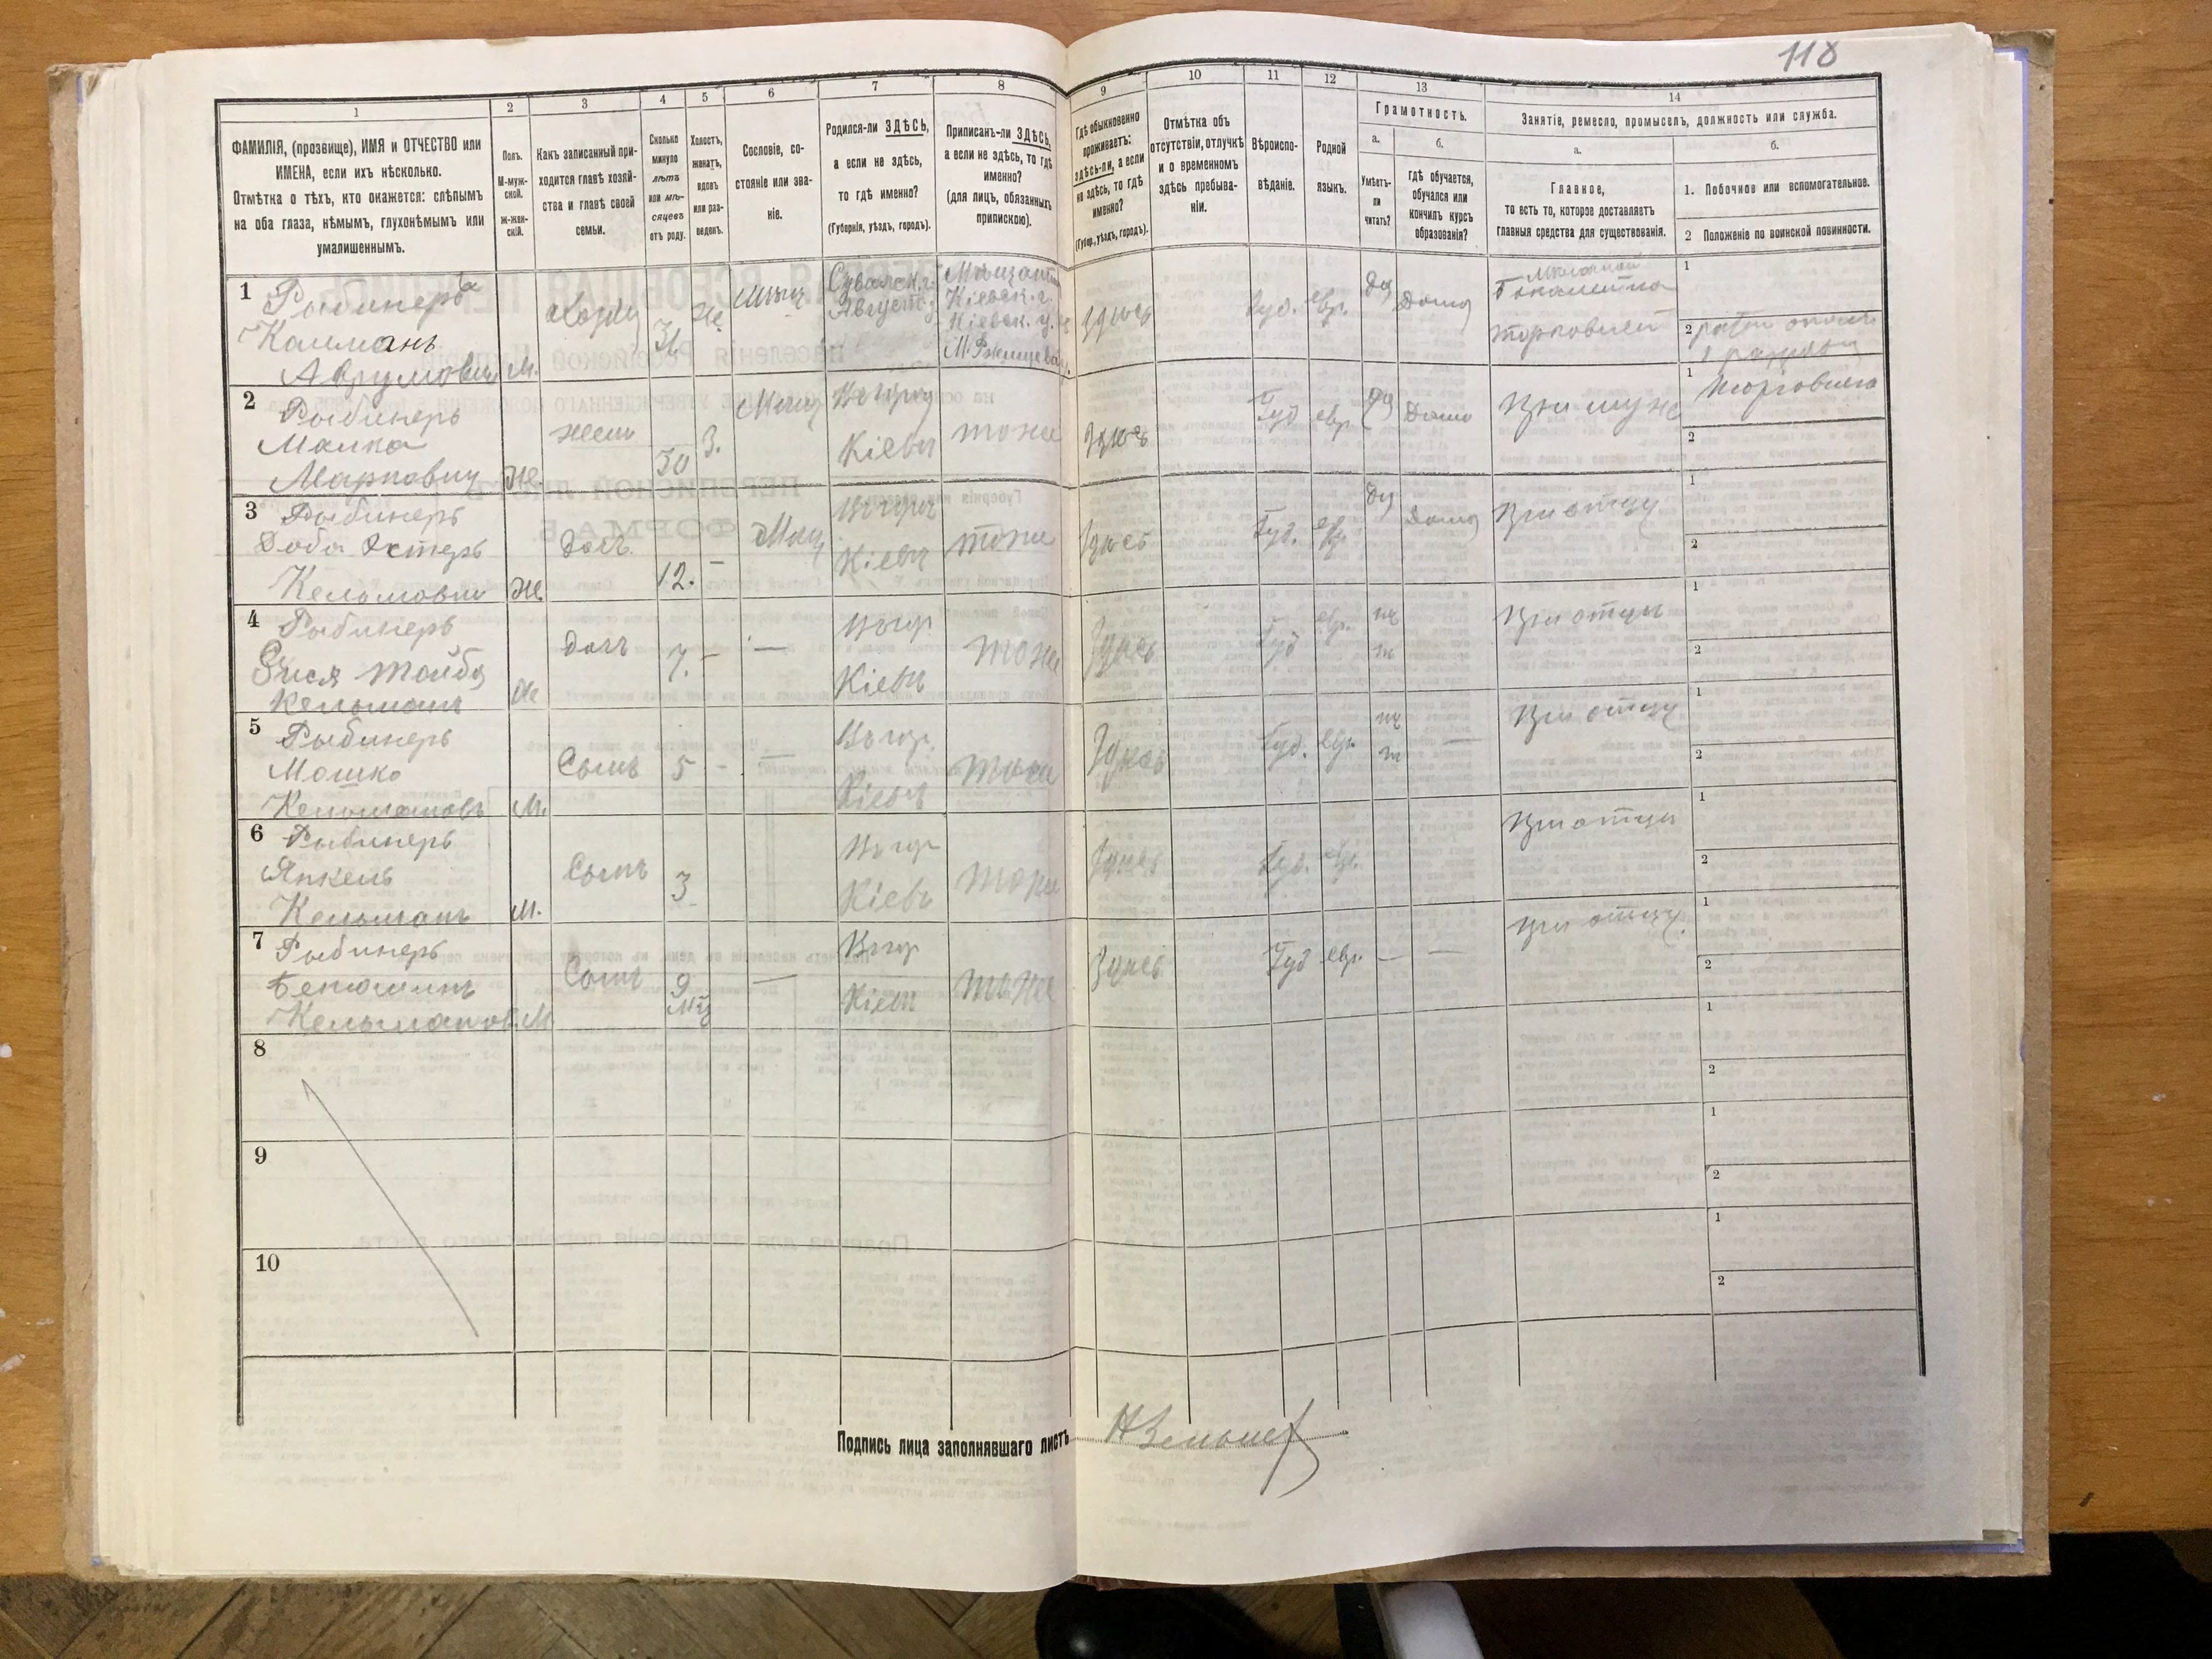 118
1
2
3
4
5
6
7
8
9
10
11
12
13
14
ФАМИЛІЯ, (прозвище), ИМЯ и ОТЧЕСТВО или
ИМЕНА, если ихъ нѣсколько.
Отмѣтка о тѣхъ, кто окажется: слѣпымъ
на оба глаза, нѣмымъ, глухонѣмымъ или
умалишеннымъ.
Полъ.
М-муж-
ской.
Ж-жен-
скій.
Какъ записанный при-
ходится главѣ хозяй-
ства и главѣ своей
семьи.
Сколько
минуло
лѣтъ
или мѣ-
сяцевъ
отъ роду.
Холостъ,
женатъ,
вдовъ
или раз-
веденъ.
Сословіе, со-
стояніе или зва-
ніе.
Родился-ли ЗДѢСЬ,
а если не здѣсь,
то гдѣ именно?
(Губернія, уѣздъ, городъ).
Приписанъ-ли ЗДѢСЬ,
а если не здѣсь, то гдѣ
именно?
(для лицъ, обязанныхъ
припискою).
Гдѣ обыкновенно
проживаетъ:
здѣсь-ли, а если
не здѣсь, то гдѣ
именно?
(Губер., уѣздъ, городъ).
Отмѣтка объ
отсутствіи, отлучкѣ
и о временномъ
здѣсь пребыва-
ніи.
Вѣроиспо-
вѣданіе.
Родной
языкъ.
Грамотность.
а.
Умѣетъ-
ли
читать?
б.
гдѣ обучается,
обучался или
кончилъ курсъ
образованія?
Занятіе, ремесло, промыселъ, должность или служба.
а.
Главное,
то есть то, которое доставляетъ
главныя средства для существованія.
б.
1. Побочное или вспомогательное.
2 Положеніе по воинской повинности.
1
Рыбинеръ
Калманъ
Аврумовичъ
М.
Ж
Сувалск. г.
Август. у.
Кіевск. г.
Кіевск. у.
М. Ржищева
здѣсь
Іуд.
евр.
да
Дома
1
2
2
Рыбинеръ
Малка
Марковна
Ж
жена
30
З.
Мѣщ
Въ гор
Кіевѣ
тоже
Здѣсь
Іуд
евр
да
Дома
При мужѣ
1
2
3
Рыбинеръ
Доба Эстеръ
Кельмовна
Ж
дочь
12.
–
Мѣщ
Въ гор
Кіевѣ
тоже
Здѣсь
Іуд.
евр.
да
Дома
При отцу
1
2
4
Рыбинеръ
Тойба
Кельманъ
Ж
дочь
7.
–
—
Въ гор
Кіевѣ
тоже
Здѣсь
Іуд
евр.
нѣ
т
При отцу
1
2
5
Рыбинеръ
Мошко
Кельмановъ
М.
Сынъ
5
–
—
Въ гор.
Кіевѣ
тоже
Здѣсь
Іуд.
евр.
нѣ
т
—
При отцу
1
2
6
Рыбинеръ
Янкель
Кельманъ
М.
Сынъ
3
Въ гор
Кіевѣ
тоже
Здѣсь
Іуд.
евр.
При отцу
1
2
7
Рыбинеръ
Беньюминъ
Кельманов.
М
Сынъ
9
мѣ
—
Въ гор
Кіевѣ
тоже
Здѣсь
Іуд
евр.
—
—
При отцу.
1
2
8
1
2
9
1
2
10
1
2
Подпись лица заполнявшаго листъ